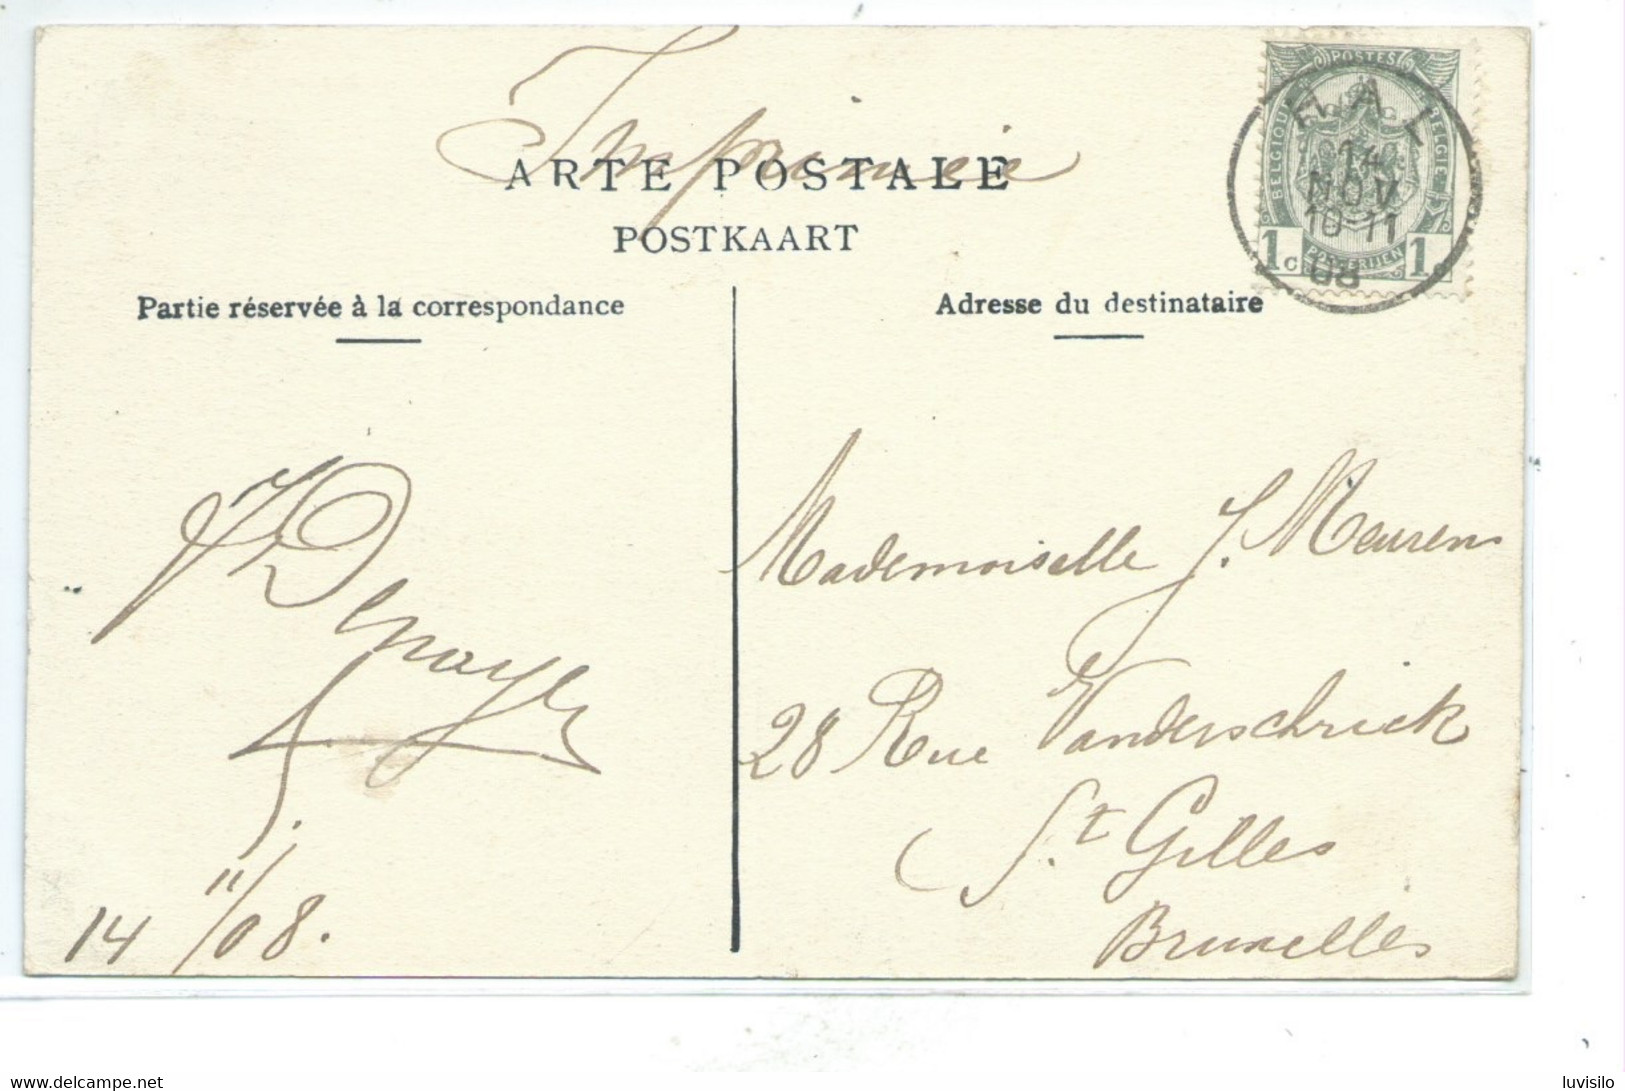 Imprimée
ARTE POSTALE
POSTKAART
Partie réservée à la correspondance
Adresse du destinataire
POSTES
BELGIQUE
BELGIE
POSTERIJEN
1c 1c
HAL
14
NOV
10-11
08
Mademoiselle J. Meurens
28 Rue Vanderschrick
St Gilles
Bruxelles
14 11/08.
www.delcampe.net
luvisilo